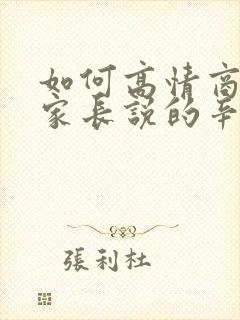 如何高情商
家長說的辛
張利杜